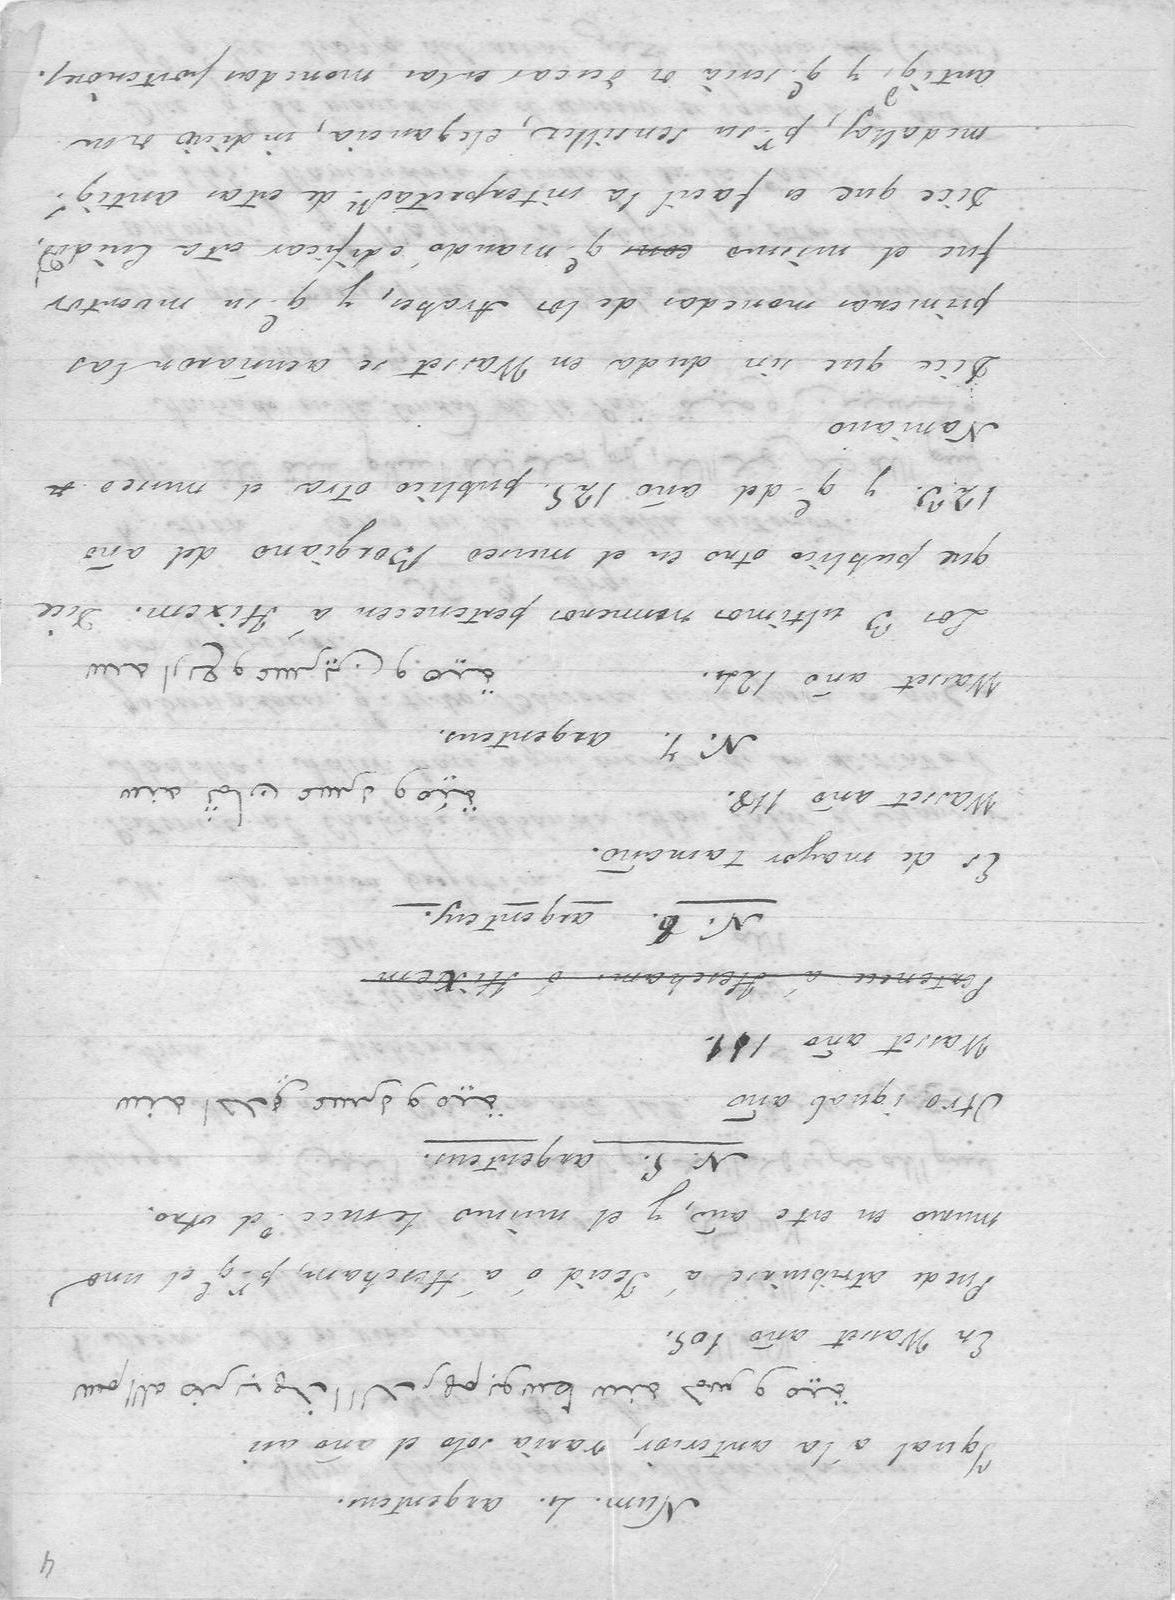 4
Num. 4. argenteus.
Igual a la anterior, varia solo el año asi
بسم الله ضرب هذا الدرهم بواسط سنة خمس و مية
En Waset año 105.
Puede atribuirse á Iecid ó á Hescham, p.r q.e el uno
murio en este año, y el mismo le sucedió el otro.
N. 5. argenteus.
Otro igual año سنة احدى عشرة و مية
Waset año 111.
Pertenece á Hescham. ó Hixem
N. 6. argenteus.
Es de mayor tamaño.
Waset año 118. سنة ثمان عشرة و مية
N. 7. argenteus.
Waset año 124. سنة اربع و عشرين و مية
Los 3 ultimos numeros pertenecen á Hixem. Dice
que publico otro en el museo Borgiano del año
123. y q.e del año 125. publico otra el museo
Naniano
Dice que sin duda en Waset se acuñaron las
primeras monedas de los Arabes, y q.e su inventor
fue el mismo con q.e mandó edificar esta Ciudad,
Dice que es facil la interpretac.n de estas antig.s
medallas, p.r su sencillez, elegancia, indicio de su
antig.d y q.e seria de buscar en las monedas posteriores.